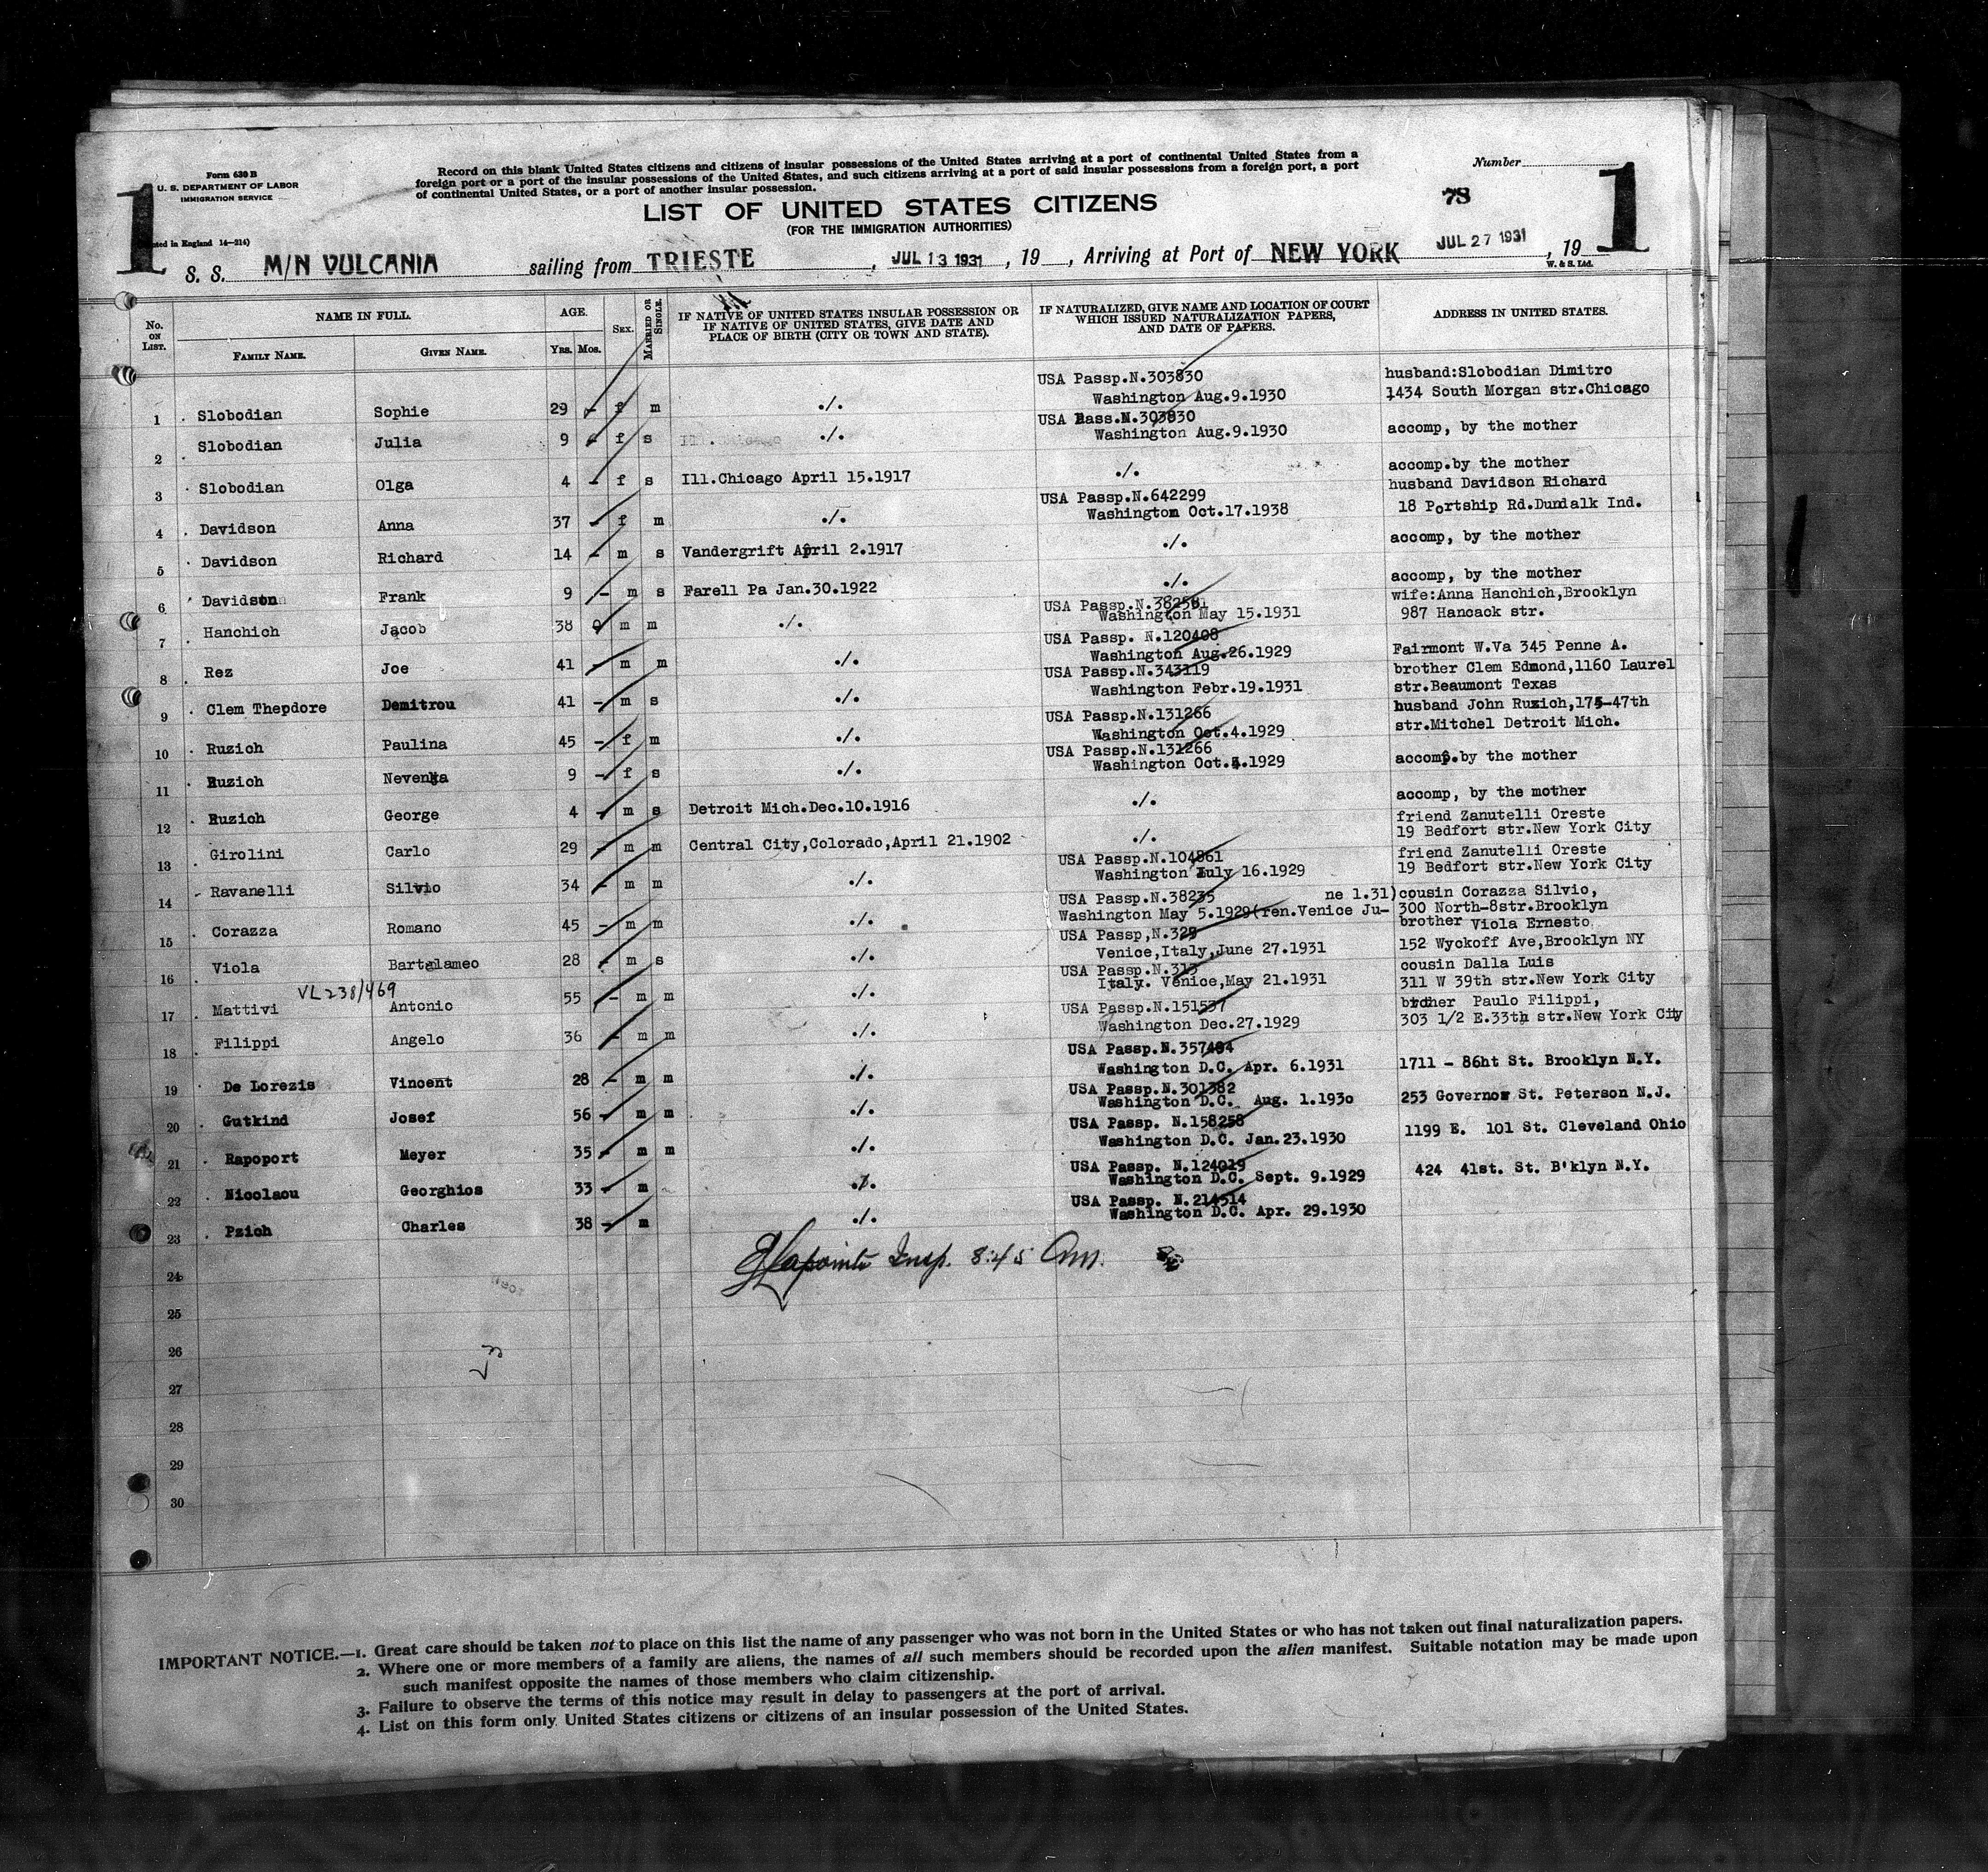 Form 630 B
U. S. DEPARTMENT OF LABOR
IMMIGRATION SERVICE
Record on this blank United States citizens and citizens of insular possessions of the United States arriving at a port of continental United States from a
foreign port or a port of the insular possessions of the United States, and such citizens arriving at a port of said insular possessions from a foreign port, a port
of continental United States, or a port of another insular possession.
Number
1
LIST OF UNITED STATES CITIZENS
78
1
(FOR THE IMMIGRATION AUTHORITIES)
in England 14—214)
S. S. M/N VULCANIA sailing from TRIESTE, JUL 13 1931, 19, Arriving at Port of NEW YORK JUL 27 1931, 19
W. & S. Ltd.
No. ON LIST.
NAME IN FULL.
FAMILY NAME.
GIVEN NAME.
AGE.
YRS. MOS.
SEX.
MARRIED OR SINGLE.
IF NATIVE OF UNITED STATES INSULAR POSSESSION OR
IF NATIVE OF UNITED STATES, GIVE DATE AND
PLACE OF BIRTH (CITY OR TOWN AND STATE).
IF NATURALIZED, GIVE NAME AND LOCATION OF COURT
WHICH ISSUED NATURALIZATION PAPERS,
AND DATE OF PAPERS.
ADDRESS IN UNITED STATES.
1 Slobodian Sophie 29 - f m ./. USA Passp.N.303830 Washington Aug.9.1930 husband:Slobodian Dimitro 1434 South Morgan str.Chicago
2 Slobodian Julia 9 f s ./. USA Pass.N.303830 Washington Aug.9.1930 accomp, by the mother
3 Slobodian Olga 4 - f s Ill.Chicago April 15.1917 ./. accomp.by the mother
4 Davidson Anna 37 - f m ./. USA Passp.N.642299 Washington Oct.17.1938 husband Davidson Richard 18 Portship Rd.Dundalk Ind.
5 Davidson Richard 14 - m s Vandergrift April 2.1917 ./. accomp, by the mother
6 Davidson Frank 9 - m s Farell Pa Jan.30.1922 ./. accomp, by the mother
7 Hanchich Jacob 38 m m ./. USA Passp.N. Washington May 15.1931 wife:Anna Hanchich,Brooklyn 987 Hancack str.
8 Rez Joe 41 - m m ./. USA Passp. N.120408 Washington Aug.26.1929 Fairmont W.Va 345 Penne A.
9 Clem Thepdore Demitrou 41 - m s ./. USA Passp.N.343119 Washington Febr.19.1931 brother Clem Edmond,1160 Laurel str.Beaumont Texas
10 Ruzich Paulina 45 - f m ./. USA Passp.N.131266 Washington Oct.4.1929 husband John Ruzich,175-47th str.Mitchel Detroit Mich.
11 Ruzich Nevenka 9 - f s ./. USA Passp.N.131266 Washington Oct.4.1929 accomp.by the mother
12 Ruzich George 4 - m s Detroit Mich.Dec.10.1916 ./. accomp, by the mother
13 Girolini Carlo 29 - m m Central City,Colorado,April 21.1902 ./. friend Zanutelli Oreste 19 Bedfort str.New York City
14 Ravanelli Silvio 34 - m m ./. USA Passp.N.104861 Washington July 16.1929 friend Zanutelli Oreste 19 Bedfort str.New York City
15 Corazza Romano 45 - m m ./. USA Passp.N.38235 Washington May 5.1929(ren.Venice Ju- ne 1.31) cousin Corazza Silvio, 300 North-8str.Brooklyn
16 Viola Bartalameo 28 - m s ./. USA Passp,N.329 Venice,Italy,June 27.1931 brother Viola Ernesto 152 Wyckoff Ave,Brooklyn NY
17 Mattivi VL 238/469 Antonio 55 - m m ./. USA Passp.N.313 Italy. Venice,May 21.1931 cousin Dalla Luis 311 W 39th str.New York City
18 Filippi Angelo 36 - m m ./. USA Passp.N.151537 Washington Dec.27.1929 brother Paulo Filippi, 303 1/2 E.33th str.New York City
19 De Lorezis Vincent 28 - m m ./. USA Passp.N.357484 Washington D.C. Apr. 6.1931 1711 - 86ht St. Brooklyn N.Y.
20 Gutkind Josef 56 - m m ./. USA Passp.N.301382 Washington D.C. Aug. 1.1930 253 Governor St. Peterson N.J.
21 Rapoport Meyer 35 - m m ./. USA Passp. N.158258 Washington D.C. Jan.23.1930 1199 E. 101 St. Cleveland Ohio
22 Nicolaou Georghios 33 - m ./. USA Passp. N.124019 Washington D.C. Sept. 9.1929 424 41st. St. B'klyn N.Y.
23 Pzich Charles 38 - m ./. USA Passp. N.214514 Washington D.C. Apr. 29.1930
24 Lapointe Insp. 8:45 Am.
25
26
27
28
29
30
IMPORTANT NOTICE.—1. Great care should be taken not to place on this list the name of any passenger who was not born in the United States or who has not taken out final naturalization papers.
2. Where one or more members of a family are aliens, the names of all such members should be recorded upon the alien manifest. Suitable notation may be made upon
such manifest opposite the names of those members who claim citizenship.
3. Failure to observe the terms of this notice may result in delay to passengers at the port of arrival.
4. List on this form only United States citizens or citizens of an insular possession of the United States.